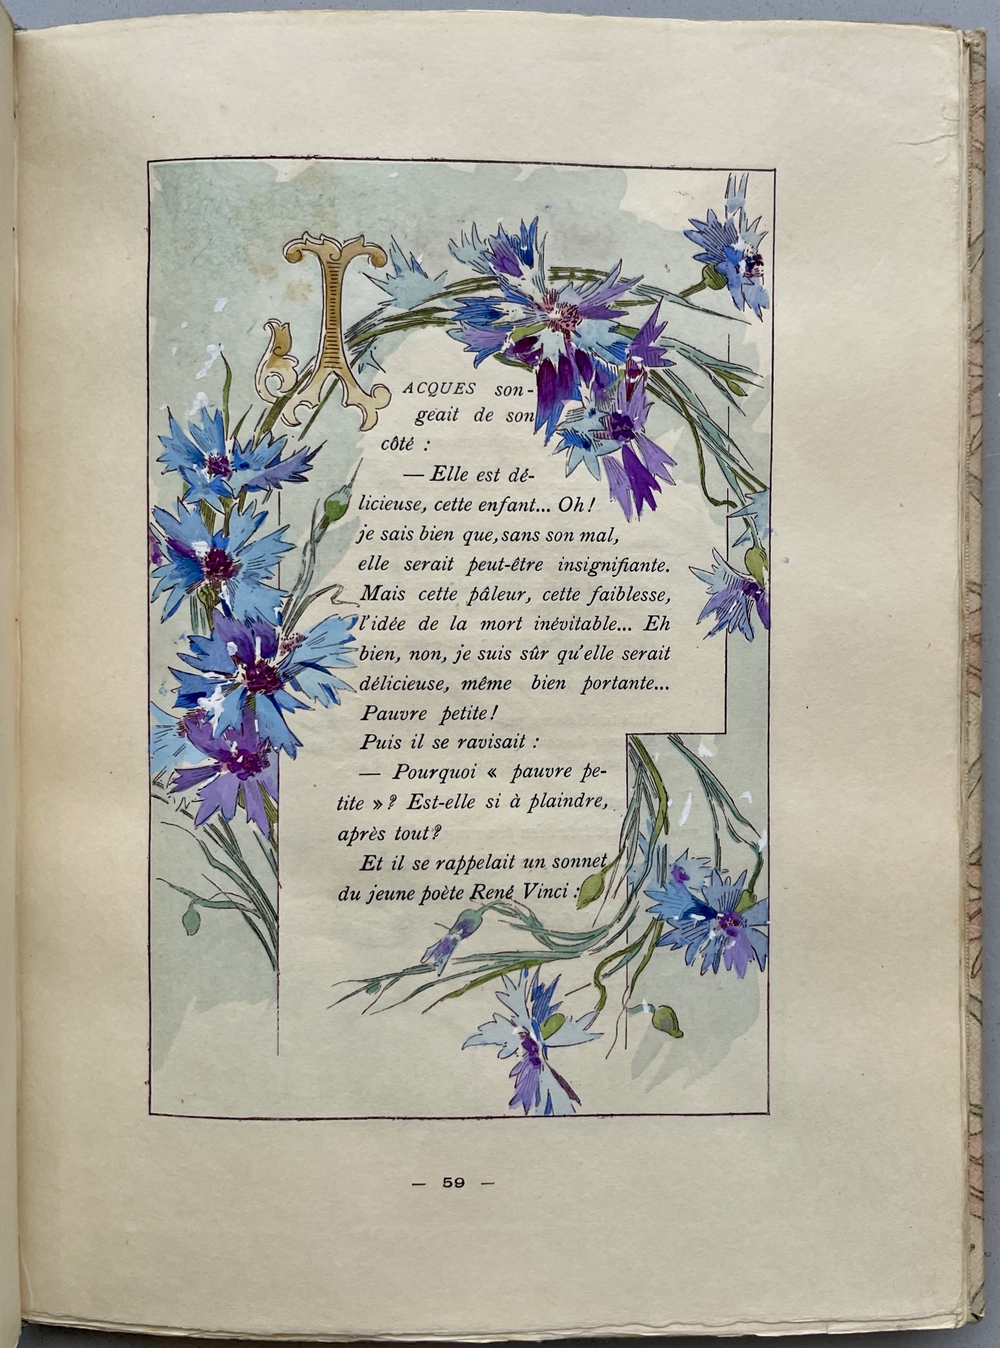 JACQUES son-
geait de son
côté :
— Elle est dé-
licieuse, cette enfant... Oh!
je sais bien que, sans son mal,
elle serait peut-être insignifiante.
Mais cette pâleur, cette faiblesse,
l'idée de la mort inévitable... Eh
bien, non, je suis sûr qu'elle serait
délicieuse, même bien portante...
Pauvre petite!
Puis il se ravisait :
— Pourquoi « pauvre pe-
tite »? Est-elle si à plaindre,
après tout?
Et il se rappelait un sonnet
du jeune poète René Vinci :
— 59 —